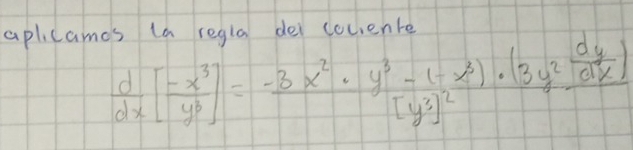 aplicamos la regla del cociente
d/dx [-x³/y³] = (-3x² · y³ - (-x³) · (3y² dy/dx)) / [y³]²